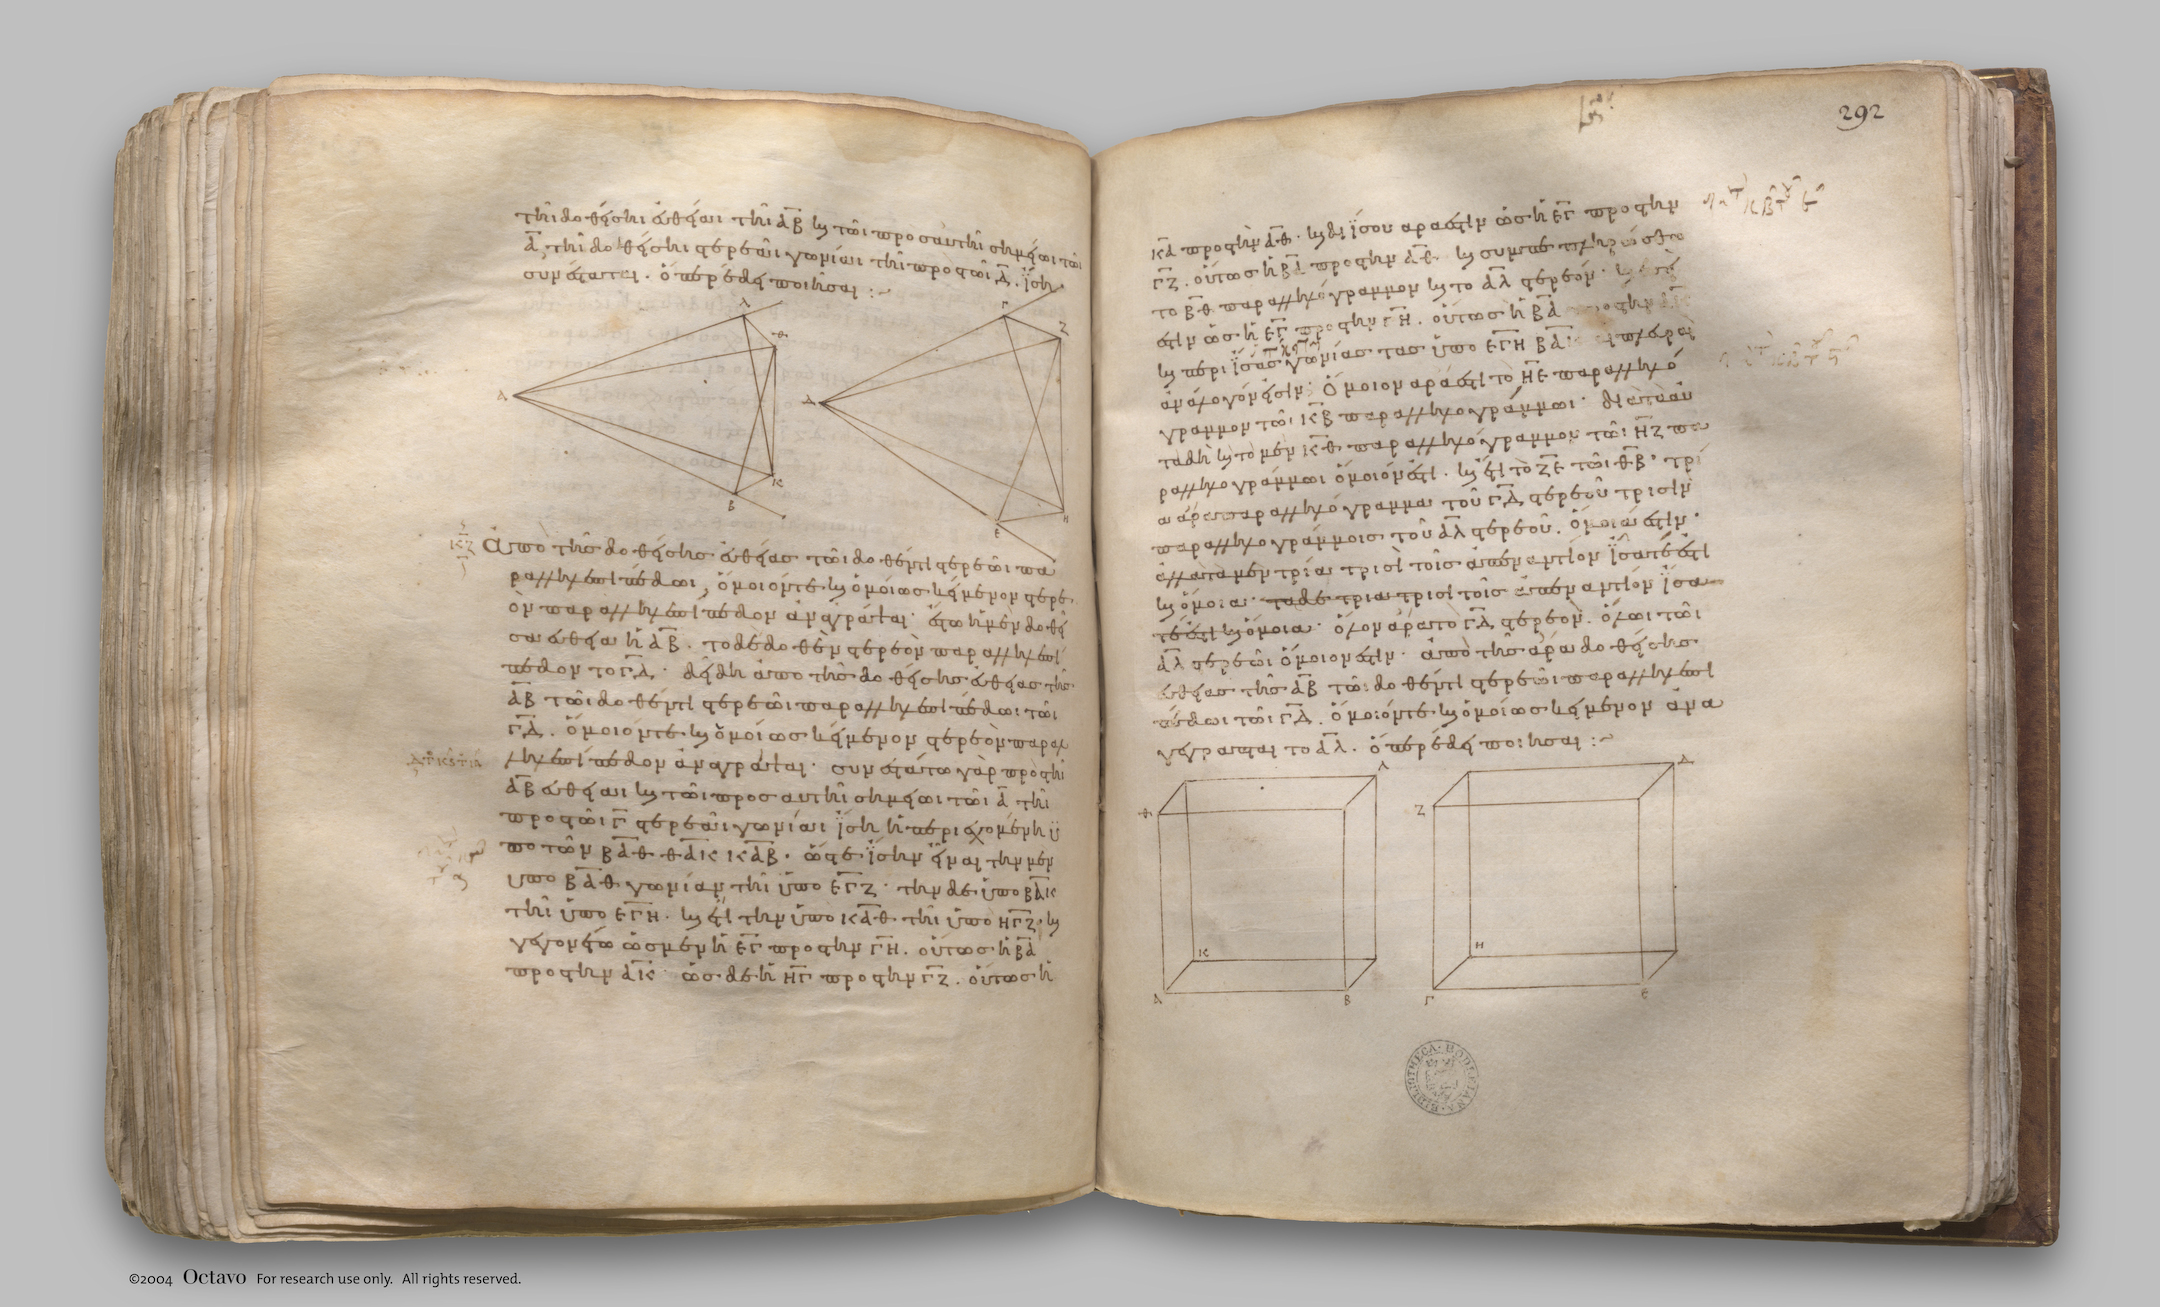 τῆι δοθείσηι εὐθείαι τῆι ΑΒ καὶ τῶι πρὸς αὐτῆι σημείωι τῶι
Α τῆι δοθείσηι στερεᾶι γωνίαι τῆι πρὸς τῶι Δ. ἴση
συνέσταται· ὅπερ ἔδει ποιῆσαι :~
Λ
Θ
Α
Κ
Β
Γ
Ζ
Δ
Η
Ε
κζ
Ἀπὸ τῆς δοθείσης εὐθείας τῶι δοθέντι στερεῶι πα
ραλληλεπιπέδωι, ὅμοιόν τε καὶ ὁμοίως κείμενον στερε
ὸν παραλληλεπίπεδον ἀναγράψαι· ἔστω ἡ μὲν δοθεῖ
σα εὐθεῖα ἡ ΑΒ. τὸ δὲ δοθὲν στερεὸν παραλληλεπί
πεδον τὸ ΓΔ· δεῖ δὴ ἀπὸ τῆς δοθείσης εὐθείας τῆς
ΑΒ τῶι δοθέντι στερεῶι παραλληλεπιπέδωι τῶι
ΓΔ. ὅμοιόν τε καὶ ὁμοίως κείμενον στερεὸν παραλ
ληλεπίπεδον ἀναγράψαι· συνεστάτω γὰρ πρὸς τῆι
ΑΒ εὐθείαι καὶ τῶι πρὸς αὐτῆι σημείωι τῶι Α τῆι
πρὸς τῶι Γ στερεᾶι γωνίαι ἴση ἡ περιεχομένη ὑ
πὸ τῶν ΒΑΘ ΘΑΚ ΚΑΒ. ὥστε ἴσην εἶναι τὴν μὲν
ὑπὸ ΒΑΘ γωνίαν τῆι ὑπὸ ΕΓΖ· τὴν δὲ ὑπὸ ΒΑΚ
τῆι ὑπὸ ΕΓΗ· καὶ ἔτι τὴν ὑπὸ ΚΑΘ τῆι ὑπὸ ΗΓΖ· καὶ
γεγονέτω ὡς μὲν ἡ ΕΓ πρὸς τὴν ΓΗ. οὕτως ἡ ΒΑ
πρὸς τὴν ΑΚ· ὡς δὲ ἡ ΗΓ πρὸς τὴν ΓΖ. οὕτως ἡ
292
ΚΑ πρὸς τὴν ΑΘ· καὶ δι ἴσου ἄρα ἐστὶν ὡς ἡ ΕΓ πρὸς τὴν
ΓΖ. οὕτως ἡ ΒΑ πρὸς τὴν ΑΘ· καὶ συμπεπληρώσθω
τὸ ΒΘ παραλληλόγραμμον καὶ τὸ ΑΛ στερεόν· καὶ ἐπεί
ἐστιν ὡς ἡ ΕΓ πρὸς τὴν ΓΗ. οὕτως ἡ ΒΑ πρὸς τὴν ΑΚ
καὶ περὶ ἴσας γωνίας τὰς ὑπὸ ΕΓΗ ΒΑΚ αἱ πλευραὶ
ἀνάλογόν εἰσιν· Ὅμοιον ἄρα ἐστὶ τὸ ΗΕ παραλληλό
γραμμον τῶι ΚΒ παραλληλογράμμωι· διὰ τὰ αὐ
τὰ δὴ καὶ τὸ μὲν ΚΘ παραλληλόγραμμον τῶι ΗΖ πα
ραλληλογράμμωι ὅμοιόν ἐστι. καὶ ἔτι τὸ ΖΕ τῶι ΘΒ· τρί
α ἄρα παραλληλόγραμμα τοῦ ΓΔ στερεοῦ τρισὶν
παραλληλογράμμοις τοῦ ΑΛ στερεοῦ. ὅμοιά ἐστιν·
ἀλλὰ τὰ μὲν τρία τρισὶ τοῖς ἀπεναντίον ἴσα τέ ἐστι
καὶ ὅμοια· τὰ δὲ τρία τρισὶ τοῖς ἀπεναντίον ἴσα
τέ ἐστι καὶ ὅμοια· ὅλον ἄρα τὸ ΓΔ στερεὸν. ὅλωι τῶι
ΑΛ στερεῶι ὅμοιόν ἐστιν· ἀπὸ τῆς ἄρα δοθείσης
εὐθείας τῆς ΑΒ τῶι δοθέντι στερεῶι παραλληλεπι
πέδωι τῶι ΓΔ. ὅμοιόν τε καὶ ὁμοίως κείμενον ἀνα
γέγραπται τὸ ΑΛ. ὅπερ ἔδει ποιῆσαι :~
Λ
Θ
Κ
Α
Β
Δ
Ζ
Η
Γ
Ε
BIBLIOTHECA · BODLEIANA
©2004 Octavo For research use only. All rights reserved.